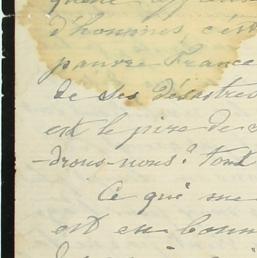 d'hommes, c'est
pauvre France
de ses désastres
est le pire de
-drons-nous? tout
Ce qui me
est en bonn